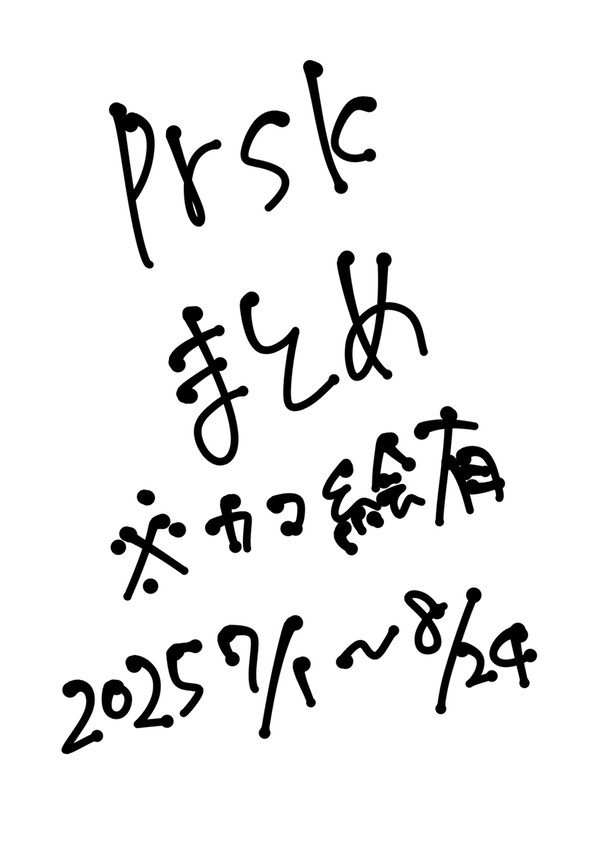 prsk
まとめ
※カコ絵有
2025 7/1～8/24